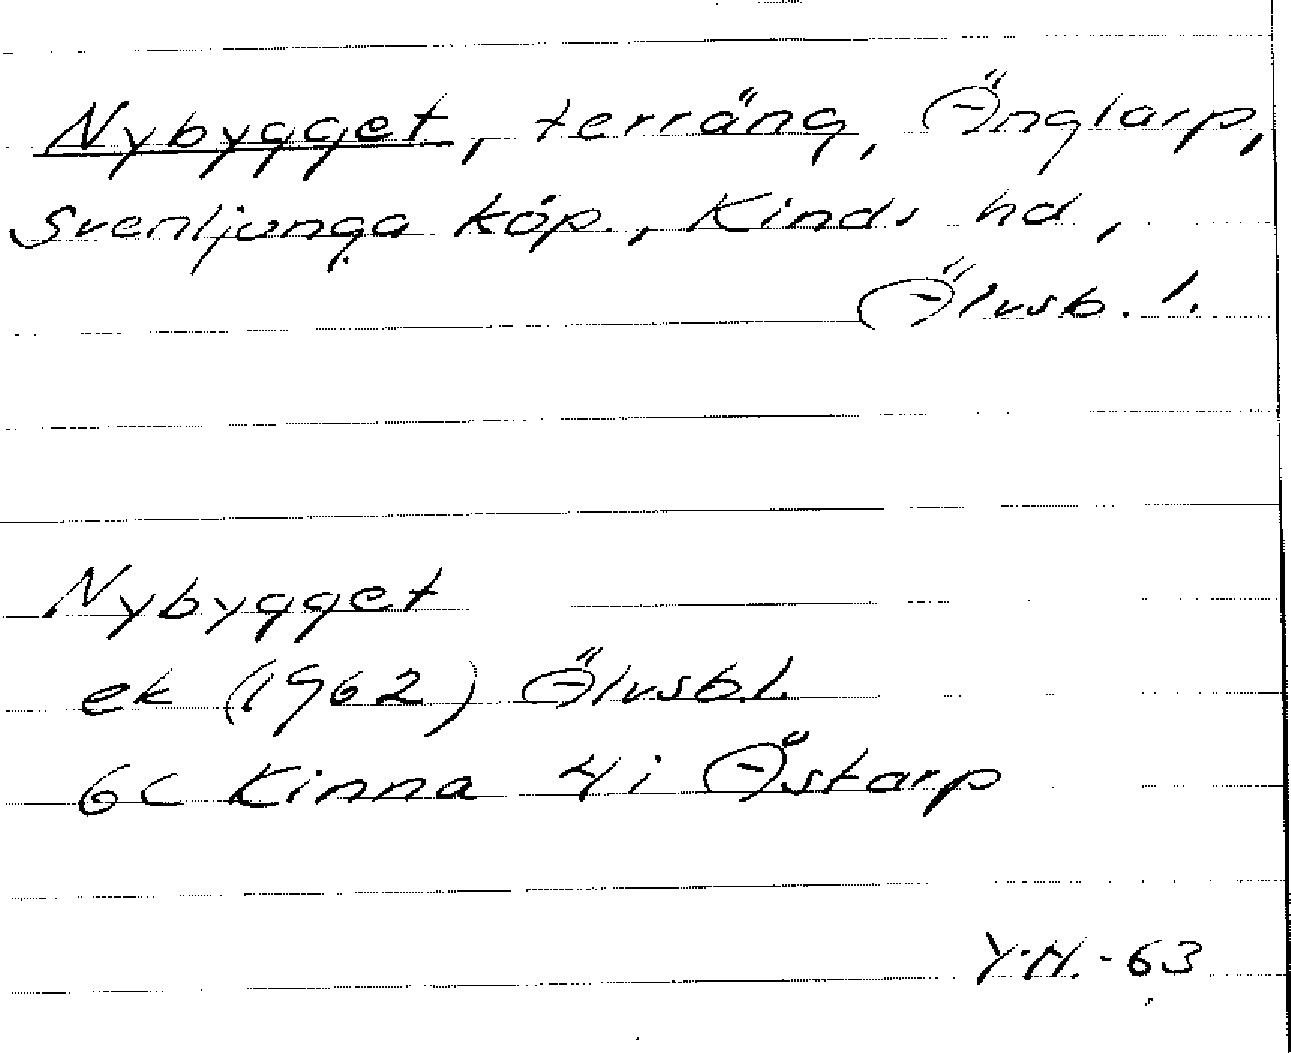 Nybygget, terräng, Änglarp,
Svenljunga köp., Kinds hd,
Älvsb. l.
Nybygget
ek (1962) Älvsb.l.
6C Kinna 4i Åstarp
Y.N.-63